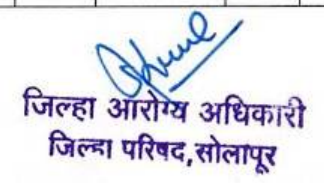 जिल्हा आरोग्य अधिकारी
जिल्हा परिषद, सोलापूर